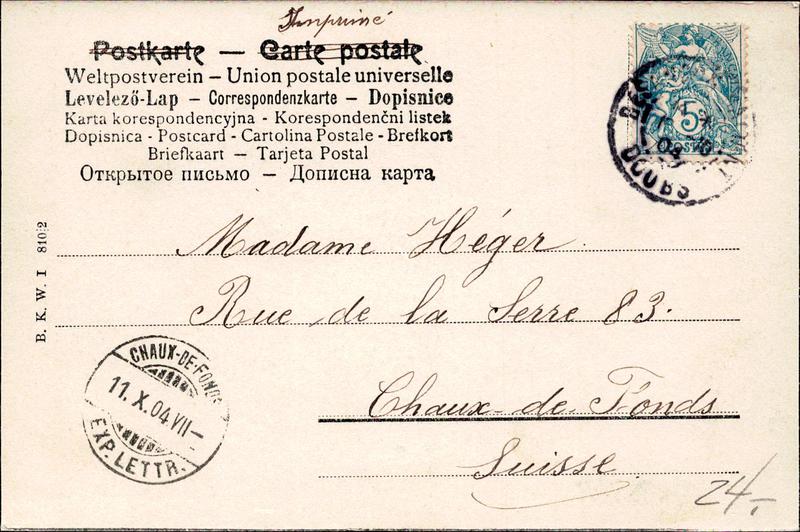 Imprimé
Postkarte — Carte postale
Weltpostverein – Union postale universelle
Levelező-Lap – Correspondenzkarte – Dopisnice
Karta korespondencyjna - Korespondenční listek
Dopisnica - Postcard - Cartolina Postale - Brefkort
Briefkaart – Tarjeta Postal
Открытое письмо – Дописна карта
5
POSTES
04
DOUBS
B. K. W. I 810/2
Madame Héger
Rue de la Serre 83.
Chaux-de-Fonds
Suisse
CHAUX-DE-FONDS
11.X.04.VII–
EXP. LETTR.
24.-